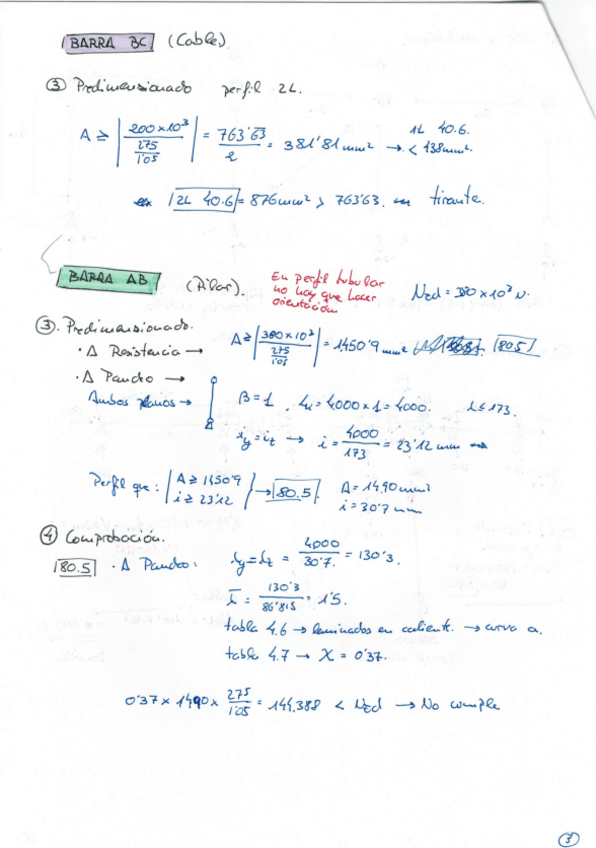 BARRA BC (Cable).
③ Predimensionado perfil 2L.
A ≥ | 200x10³ / (275/1'05) | = 763'63 / 2 = 381'81 mm² → 1L 40.6. < 438mm².
2L 40.6 = 876mm² > 763'63. tirante.
BARRA AB (Pilar).
En perfil tubular
no hay que hacer
orientación
NEd = 380 x 10³ N.
③. Predimensionado.
· A Resistencia → A ≥ | 380x10³ / (275/1'05) | = 1450'9 mm² 80.5
· A Pandeo →
Ambos planos → β = 1, Lk = 4000 x 1 = 4000. λ ≤ 173.
iy = iz → i = 4000 / 173 = 23'12 mm
Perfil que: | A ≥ 1450'9
i ≥ 23'12 | → 80.5. A = 1490mm²
i = 30'7 mm
④ Comprobación.
80.5 · A Pandeo: λy = λz = 4000 / 30'7. = 130'3.
λ̅ = 130'3 / 86'815 = 1'5.
tabla 4.6 → laminados en caliente. → curva a.
tabla 4.7 → X = 0'37.
0'37 x 1490 x 275 / 1'05 = 144.388 < NEd → No cumple
③